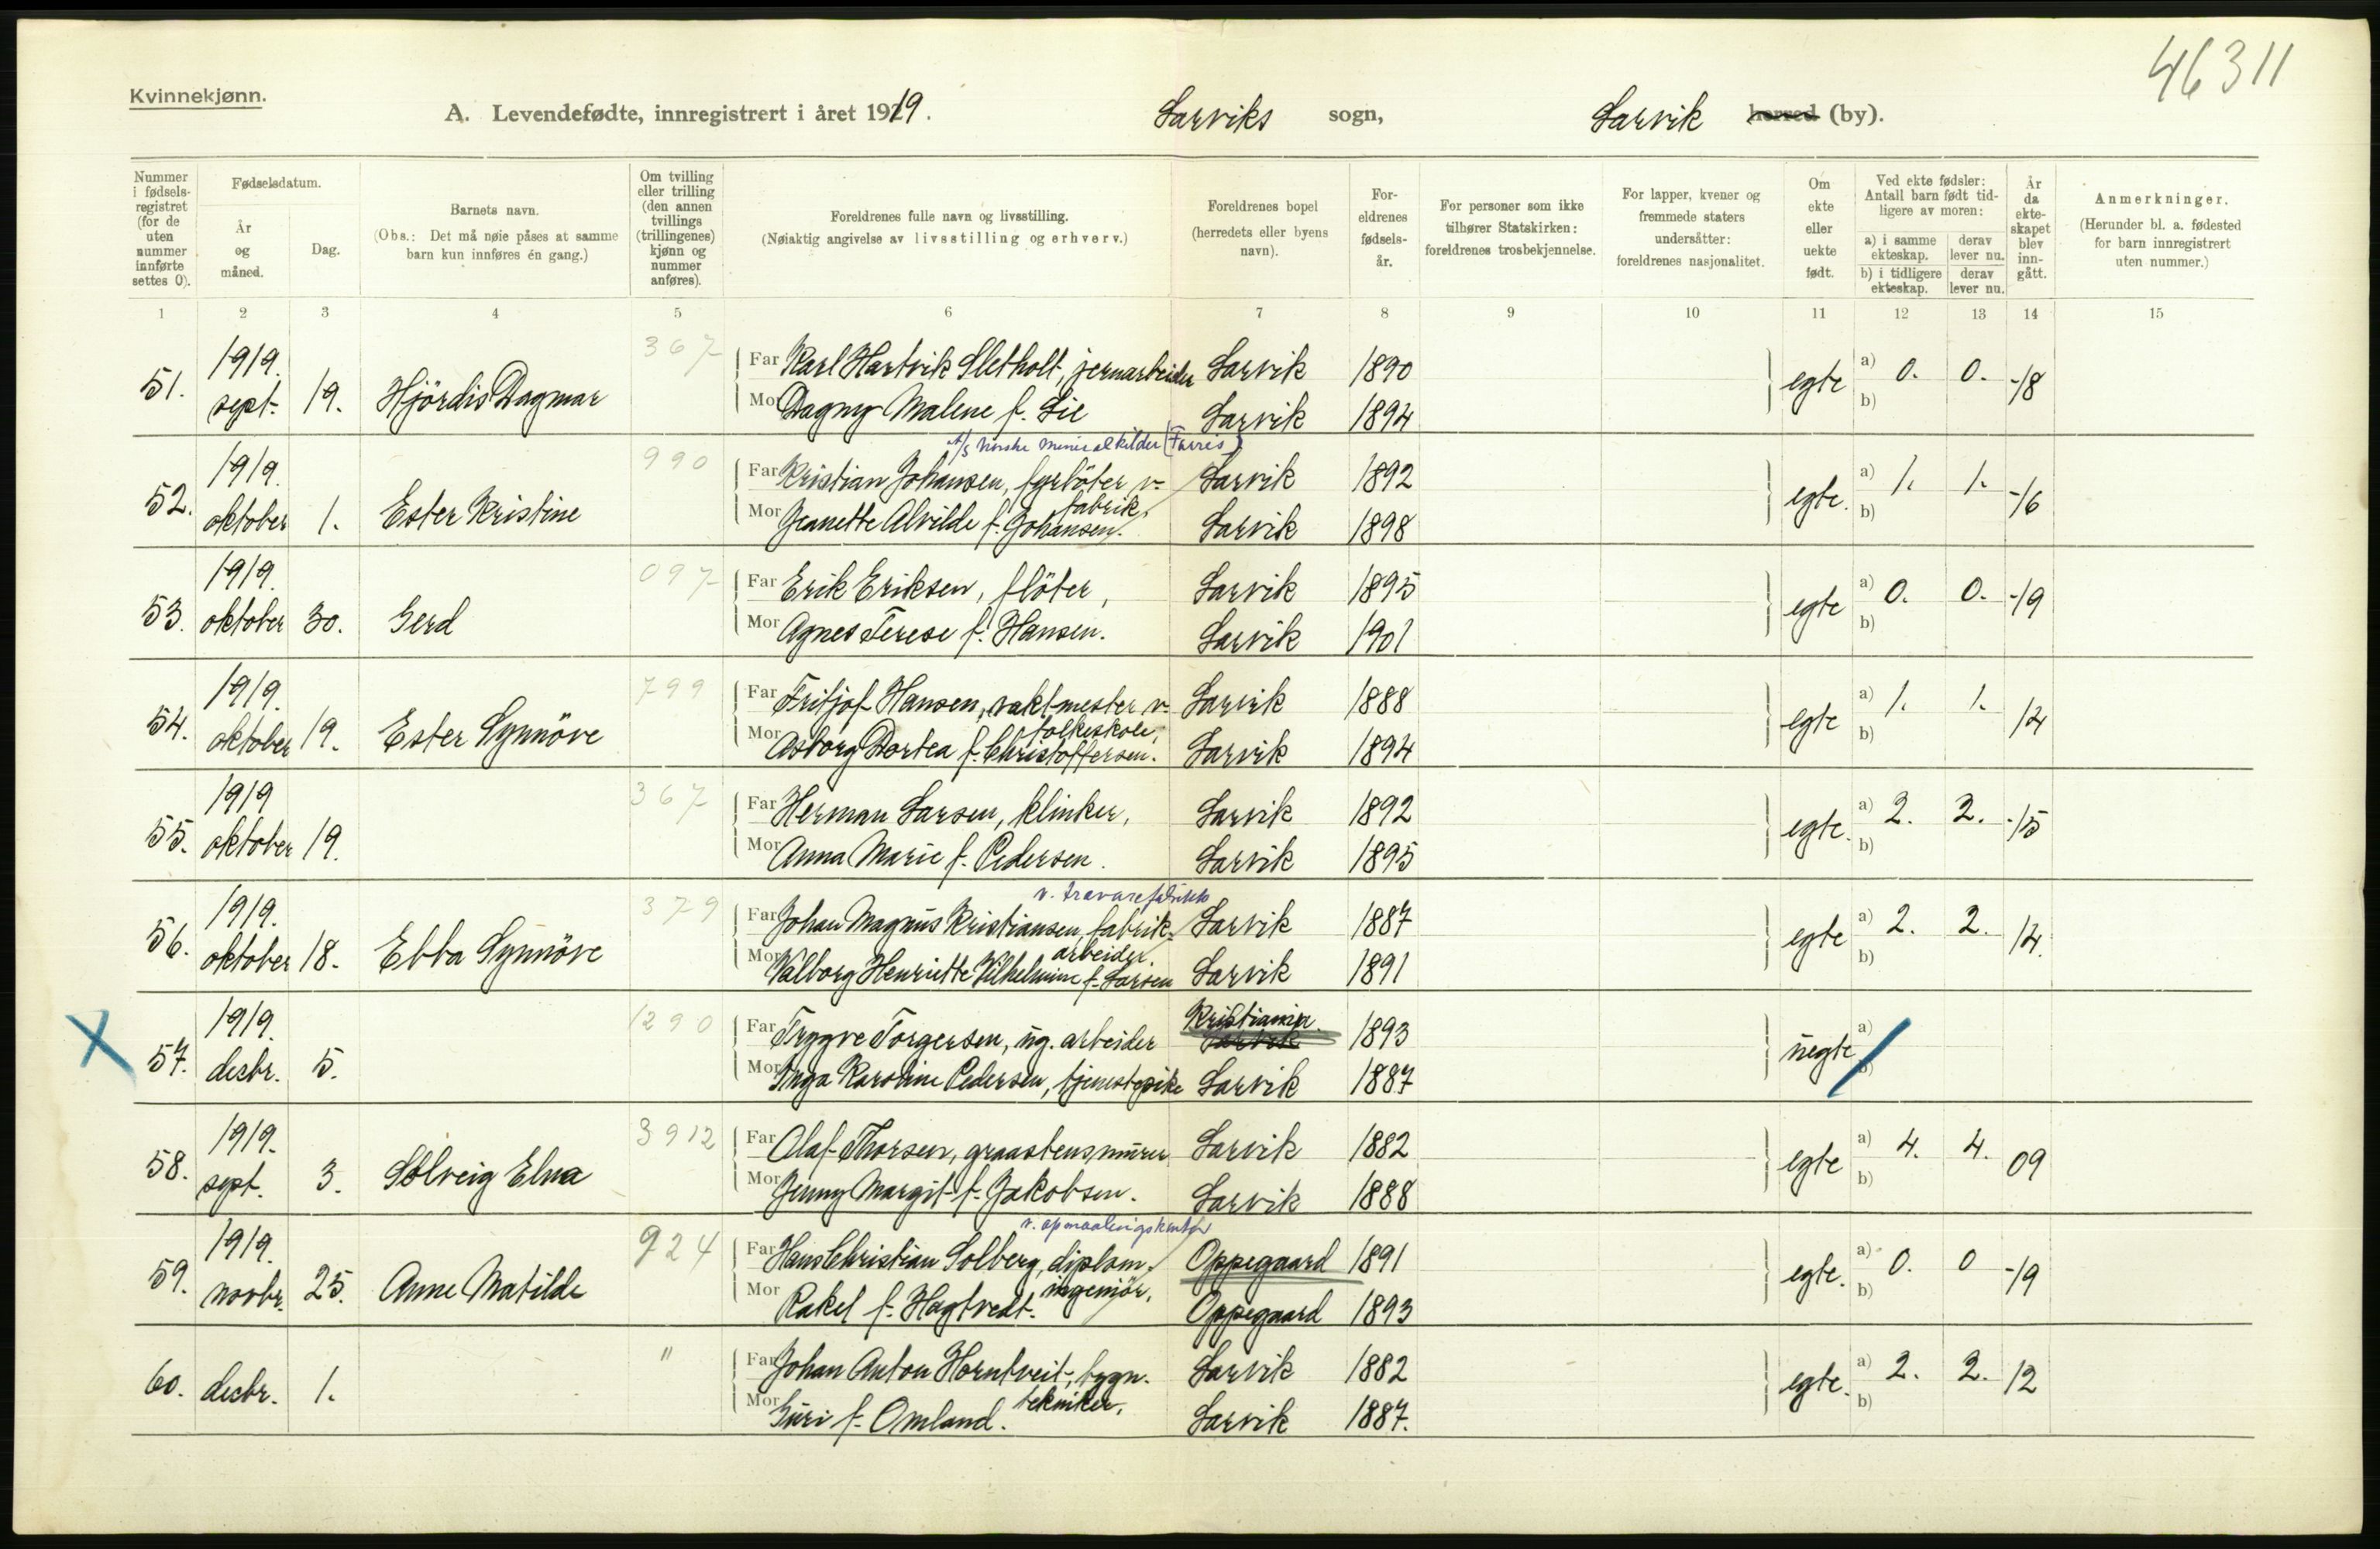 46311
Kvinnekjønn.
A. Levendefødte, innregistrert i året 1919. Larviks sogn, Larvik herred (by).
Nummer i fødsels-registret (for de uten nummer innførte settes 0).
Fødselsdatum.
År og måned.
Dag.
Barnets navn.
(Obs.: Det må nøie påses at samme barn kun innføres én gang.)
Om tvilling eller trilling (den annen tvillings (trillingenes) kjønn og nummer anføres).
Foreldrenes fulle navn og livsstilling.
(Nøiaktig angivelse av livsstilling og erhverv.)
Foreldrenes bopel (herredets eller byens navn).
For-eldrenes fødsels-år.
For personer som ikke tilhører Statskirken: foreldrenes trosbekjennelse.
For lapper, kvener og fremmede staters undersåtter: foreldrenes nasjonalitet.
Om ekte eller uekte født.
Ved ekte fødsler: Antall barn født tid-ligere av moren:
a) i samme ekteskap. derav lever nu.
b) i tidligere ekteskap. derav lever nu.
År da ekte-skapet blev inn-gått.
Anmerkninger.
(Herunder bl. a. fødested for barn innregistrert uten nummer.)
1 2 3 4 5 6 7 8 9 10 11 12 13 14 15
51. 1919. sept. 19. Hjördis Dagmar 367
Far Karl Hartvik Sletholt, jernarbeider Larvik 1890 egte a) 0. 0. -18
Mor Dagny Malene f. Lie Larvik 1894 b)
A/S Norske Mineralkilder (Farris)
52. 1919. oktober 1. Ester Kristine 990
Far Kristian Johansen, fyrböter v. Larvik 1892 egte. a) 1. 1. -16
fabrik.
Mor Jeanette Alvilde f. Johansen. Larvik 1898 b)
53. 1919. oktober 30. Gerd 097
Far Erik Eriksen, flöter, Larvik 1895 egte a) 0. 0. -19
Mor Agnes Terese f. Hansen. Larvik 1901 b)
54. 1919. oktober 19. Ester Synnöve 799
Far Fritjof Hansen, vaktmester v. Larvik 1888 egte a) 1. 1. 14
folkeskole,
Mor Asborg Dortea f. Christoffersen. Larvik 1894 b)
55. 1919 oktober 19. 367
Far Herman Larsen, klinker, Larvik 1892 egte. a) 2. 2. -15
Mor Anna Marie f. Pedersen. Larvik 1895 b)
v. trævarefabrikk
56. 1919. oktober 18. Ebba Synnöve 379
Far Johan Magnus Kristiansen, fabrik- Larvik 1887 egte a) 2. 2. 14.
arbeider.
Mor Valborg Henriette Vilhelmine f. Larsen Larvik 1891 b)
57. 1919. desbr. 5. 1290
Kristiania.
Far Trygve Torgersen, ug. arbeider Larvik 1893 uegte a)
Mor Inga Karoline Pedersen, tjenestepike Larvik 1887 b)
58. 1919. sept. 3. Solveig Elna 3912
Far Olaf Thorsen, graastensmurer Larvik 1882 egte a) 4. 4. 09
Mor Jenny Margit f. Jakobsen. Larvik 1888 b)
v. opmaalingskontor
59. 1919. novbr. 25. Anne Matilde 924
Far Hans Christian Solberg, diplom. Oppegaard 1891 egte. a) 0. 0 -19
ingeniör,
Mor Rakel f. Hogtvedt. Oppegaard 1893 b)
60. desbr. 1. "
Far Johan Anton Horntveit, bygn. Larvik 1882 egte. a) 2. 2. 12
tekniker,
Mor Guri f. Omland. Larvik 1887. b)